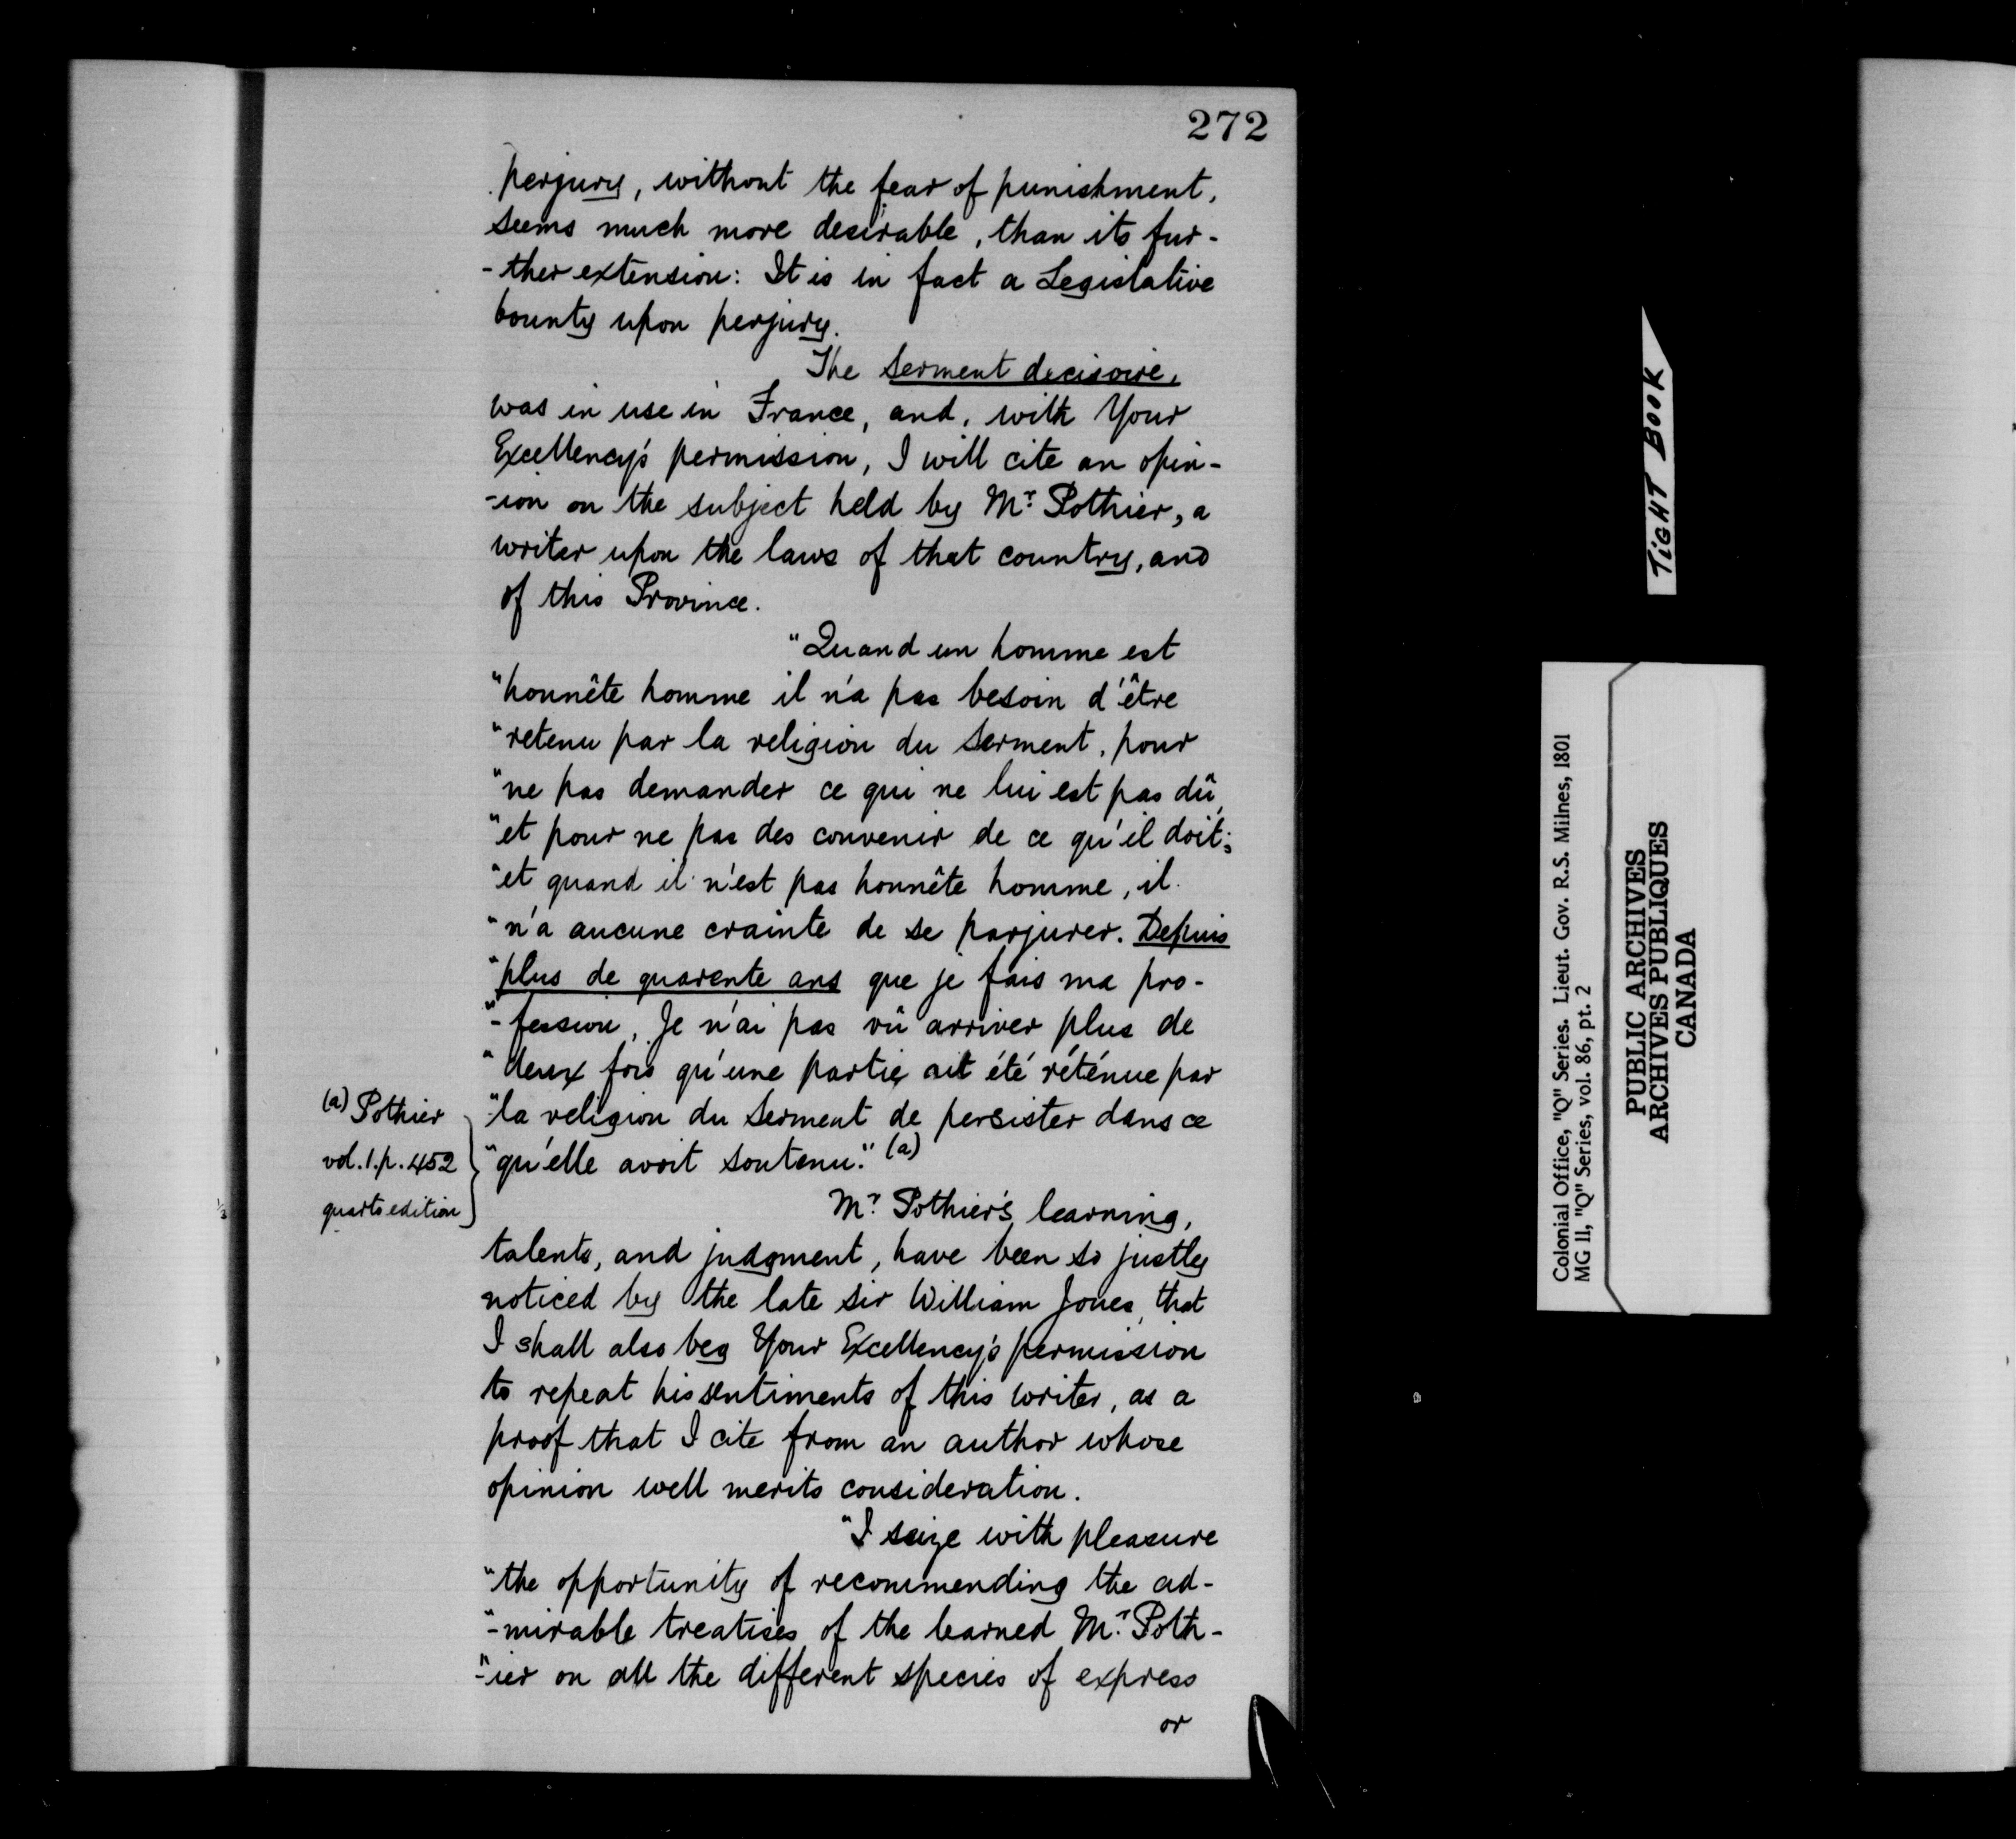 272
perjury, without the fear of punishment,
seems much more desirable, than its fur-
-ther extension: It is in fact a Legislative
bounty upon perjury.
The serment decisoire,
was in use in France, and, with Your
Excellency's permission, I will cite an opin-
-ion on the subject held by Mr. Pothier, a
writer upon the laws of that country, and
of this Province.
"Quand un homme est
"honnête homme il n'a pas besoin d'être
"retenu par la religion du serment, pour
"ne pas demander ce qui ne lui est pas dû,
"et pour ne pas des convenir de ce qu'il doit;
"et quand il n'est pas honnête homme, il
"n'a aucune crainte de se parjurer. Depuis
"plus de quarente ans que je fais ma pro-
"-fession, Je n'ai pas vû arriver plus de
"deux fois qu'une partie ait été réténue par
"la religion du serment de persister dans ce
"qu'elle avoit soutenu." (a)
(a) Pothier
vol. 1. p. 452
quarto edition
Mr. Pothier's learning,
talents, and judgment, have been so justly
noticed by the late Sir William Jones, that
I shall also beg Your Excellency's permission
to repeat his sentiments of this writer, as a
proof that I cite from an author whose
opinion well merits consideration.
"I seize with pleasure
"the opportunity of recommending the ad-
"-mirable treatises of the learned Mr. Poth-
"-ier on all the different species of express
or
TIGHT BOOK
Colonial Office, "Q" Series. Lieut. Gov. R.S. Milnes, 1801
MG 11, "Q" Series, vol. 86, pt. 2
PUBLIC ARCHIVES
ARCHIVES PUBLIQUES
CANADA